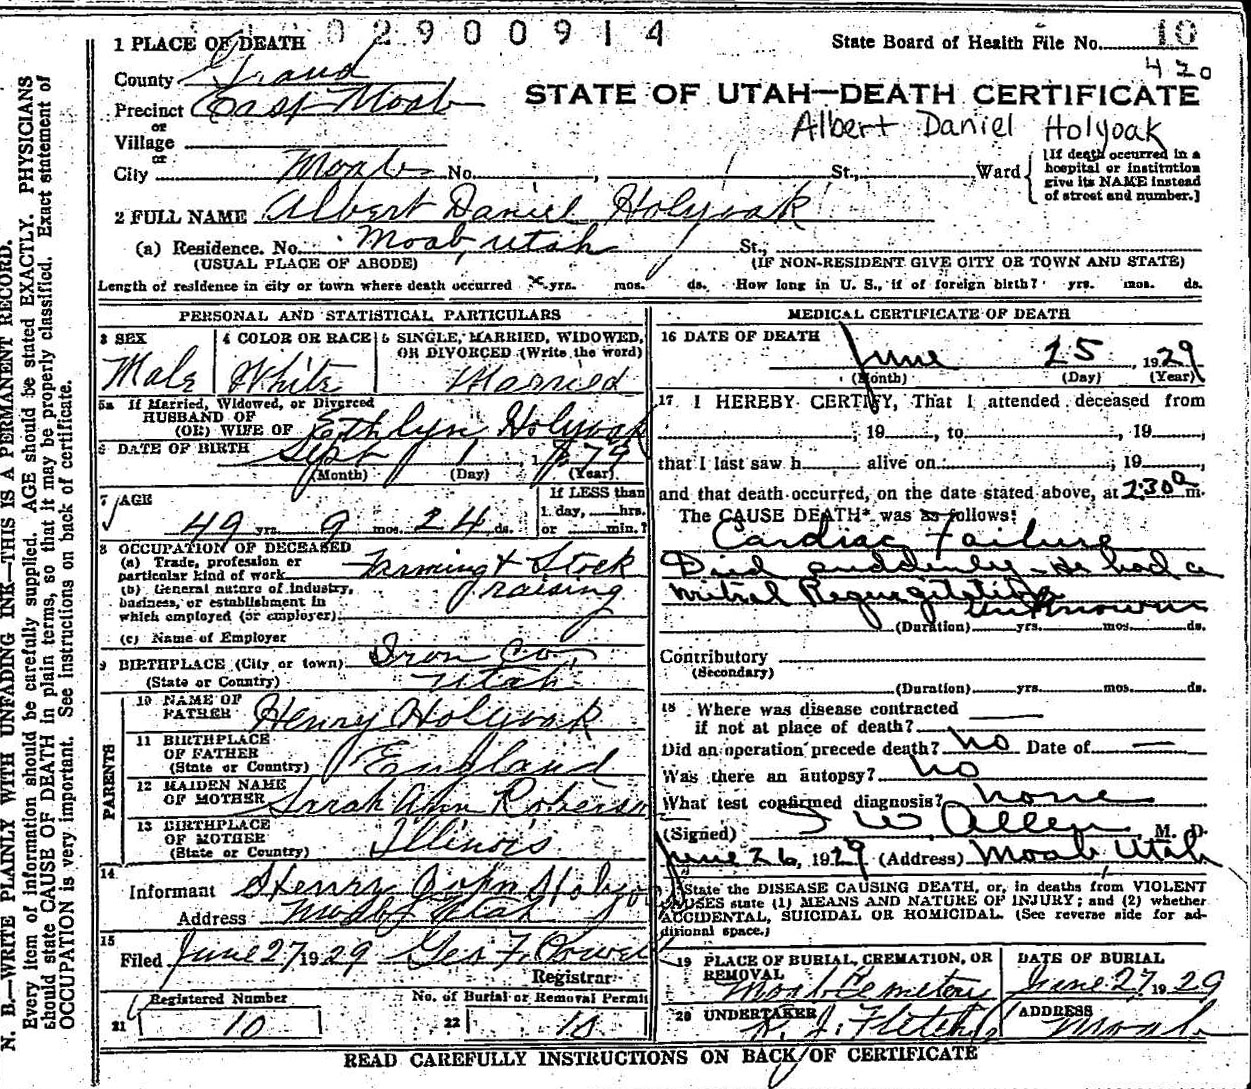 02900914
1 PLACE OF DEATH
State Board of Health File No. 10
420
County Grand
Precinct East Moab
or
Village
or
STATE OF UTAH—DEATH CERTIFICATE
Albert Daniel Holyoak
City Moab No. , St., Ward
[If death occurred in a hospital or institution give its NAME instead of street and number.]
2 FULL NAME Albert Daniel Holyoak
(a) Residence. No. Moab, Utah St.,
(USUAL PLACE OF ABODE) (IF NON-RESIDENT GIVE CITY OR TOWN AND STATE)
Length of residence in city or town where death occurred yrs. mos. ds. How long in U. S., if of foreign birth? yrs. mos. ds.
PERSONAL AND STATISTICAL PARTICULARS
3 SEX
Male
4 COLOR OR RACE
White
5 SINGLE, MARRIED, WIDOWED, OR DIVORCED (Write the word)
Married
5a If Married, Widowed, or Divorced
HUSBAND OF
(OR) WIFE OF Ethlyn Holyoak
6 DATE OF BIRTH Sept 1, 1879
(Month) (Day) (Year)
7 AGE
49 yrs. 9 mos. 24 ds.
If LESS than
1 day, hrs.
or min.?
8 OCCUPATION OF DECEASED
(a) Trade, profession or
particular kind of work Farming & Stock raising
(b) General nature of industry,
business, or establishment in
which employed (or employer)
(c) Name of Employer
9 BIRTHPLACE (City or town) Iron Co,
(State or Country) Utah
PARENTS
10 NAME OF
FATHER Henry Holyoak
11 BIRTHPLACE
OF FATHER
(State or Country) England
12 MAIDEN NAME
OF MOTHER Sarah Ann Roberson
13 BIRTHPLACE
OF MOTHER
(State or Country) Illinois
14
Informant Henry John Holyoak
Address Moab, Utah
15
Filed June 27, 1929 Geo F. Powel
Registrar
Registered Number No. of Burial or Removal Permit
21 10 22 10
MEDICAL CERTIFICATE OF DEATH
16 DATE OF DEATH
June 25, 1929
(Month) (Day) (Year)
17 I HEREBY CERTIFY, That I attended deceased from
; 19 , to , 19 ,
that I last saw h alive on ; 19
and that death occurred, on the date stated above, at 2:30 a m.
The CAUSE DEATH* was as follows:
Cardiac Failure
Died suddenly - He had a
mitral Regurgitation
unknown
(Duration) yrs. mos. ds.
Contributory
(Secondary)
(Duration) yrs. mos. ds.
18 Where was disease contracted
if not at place of death?
Did an operation precede death? No Date of —
Was there an autopsy? No
What test confirmed diagnosis? none
(Signed) J W Allen M. D.
June 26, 1929 (Address) Moab Utah
State the DISEASE CAUSING DEATH, or, in deaths from VIOLENT
CAUSES state (1) MEANS AND NATURE OF INJURY; and (2) whether
ACCIDENTAL, SUICIDAL OR HOMICIDAL. (See reverse side for ad-
ditional space.)
19 PLACE OF BURIAL, CREMATION, OR
REMOVAL
Moab Cemetery
DATE OF BURIAL
June 27, 1929
20 UNDERTAKER
R. J. Fletcher
ADDRESS
Moab
READ CAREFULLY INSTRUCTIONS ON BACK OF CERTIFICATE
N. B.—WRITE PLAINLY WITH UNFADING INK—THIS IS A PERMANENT RECORD.
Every item of information should be carefully supplied. AGE should be stated EXACTLY. PHYSICIANS
should state CAUSE OF DEATH in plain terms, so that it may be properly classified. Exact statement of
OCCUPATION is very important. See instructions on back of certificate.